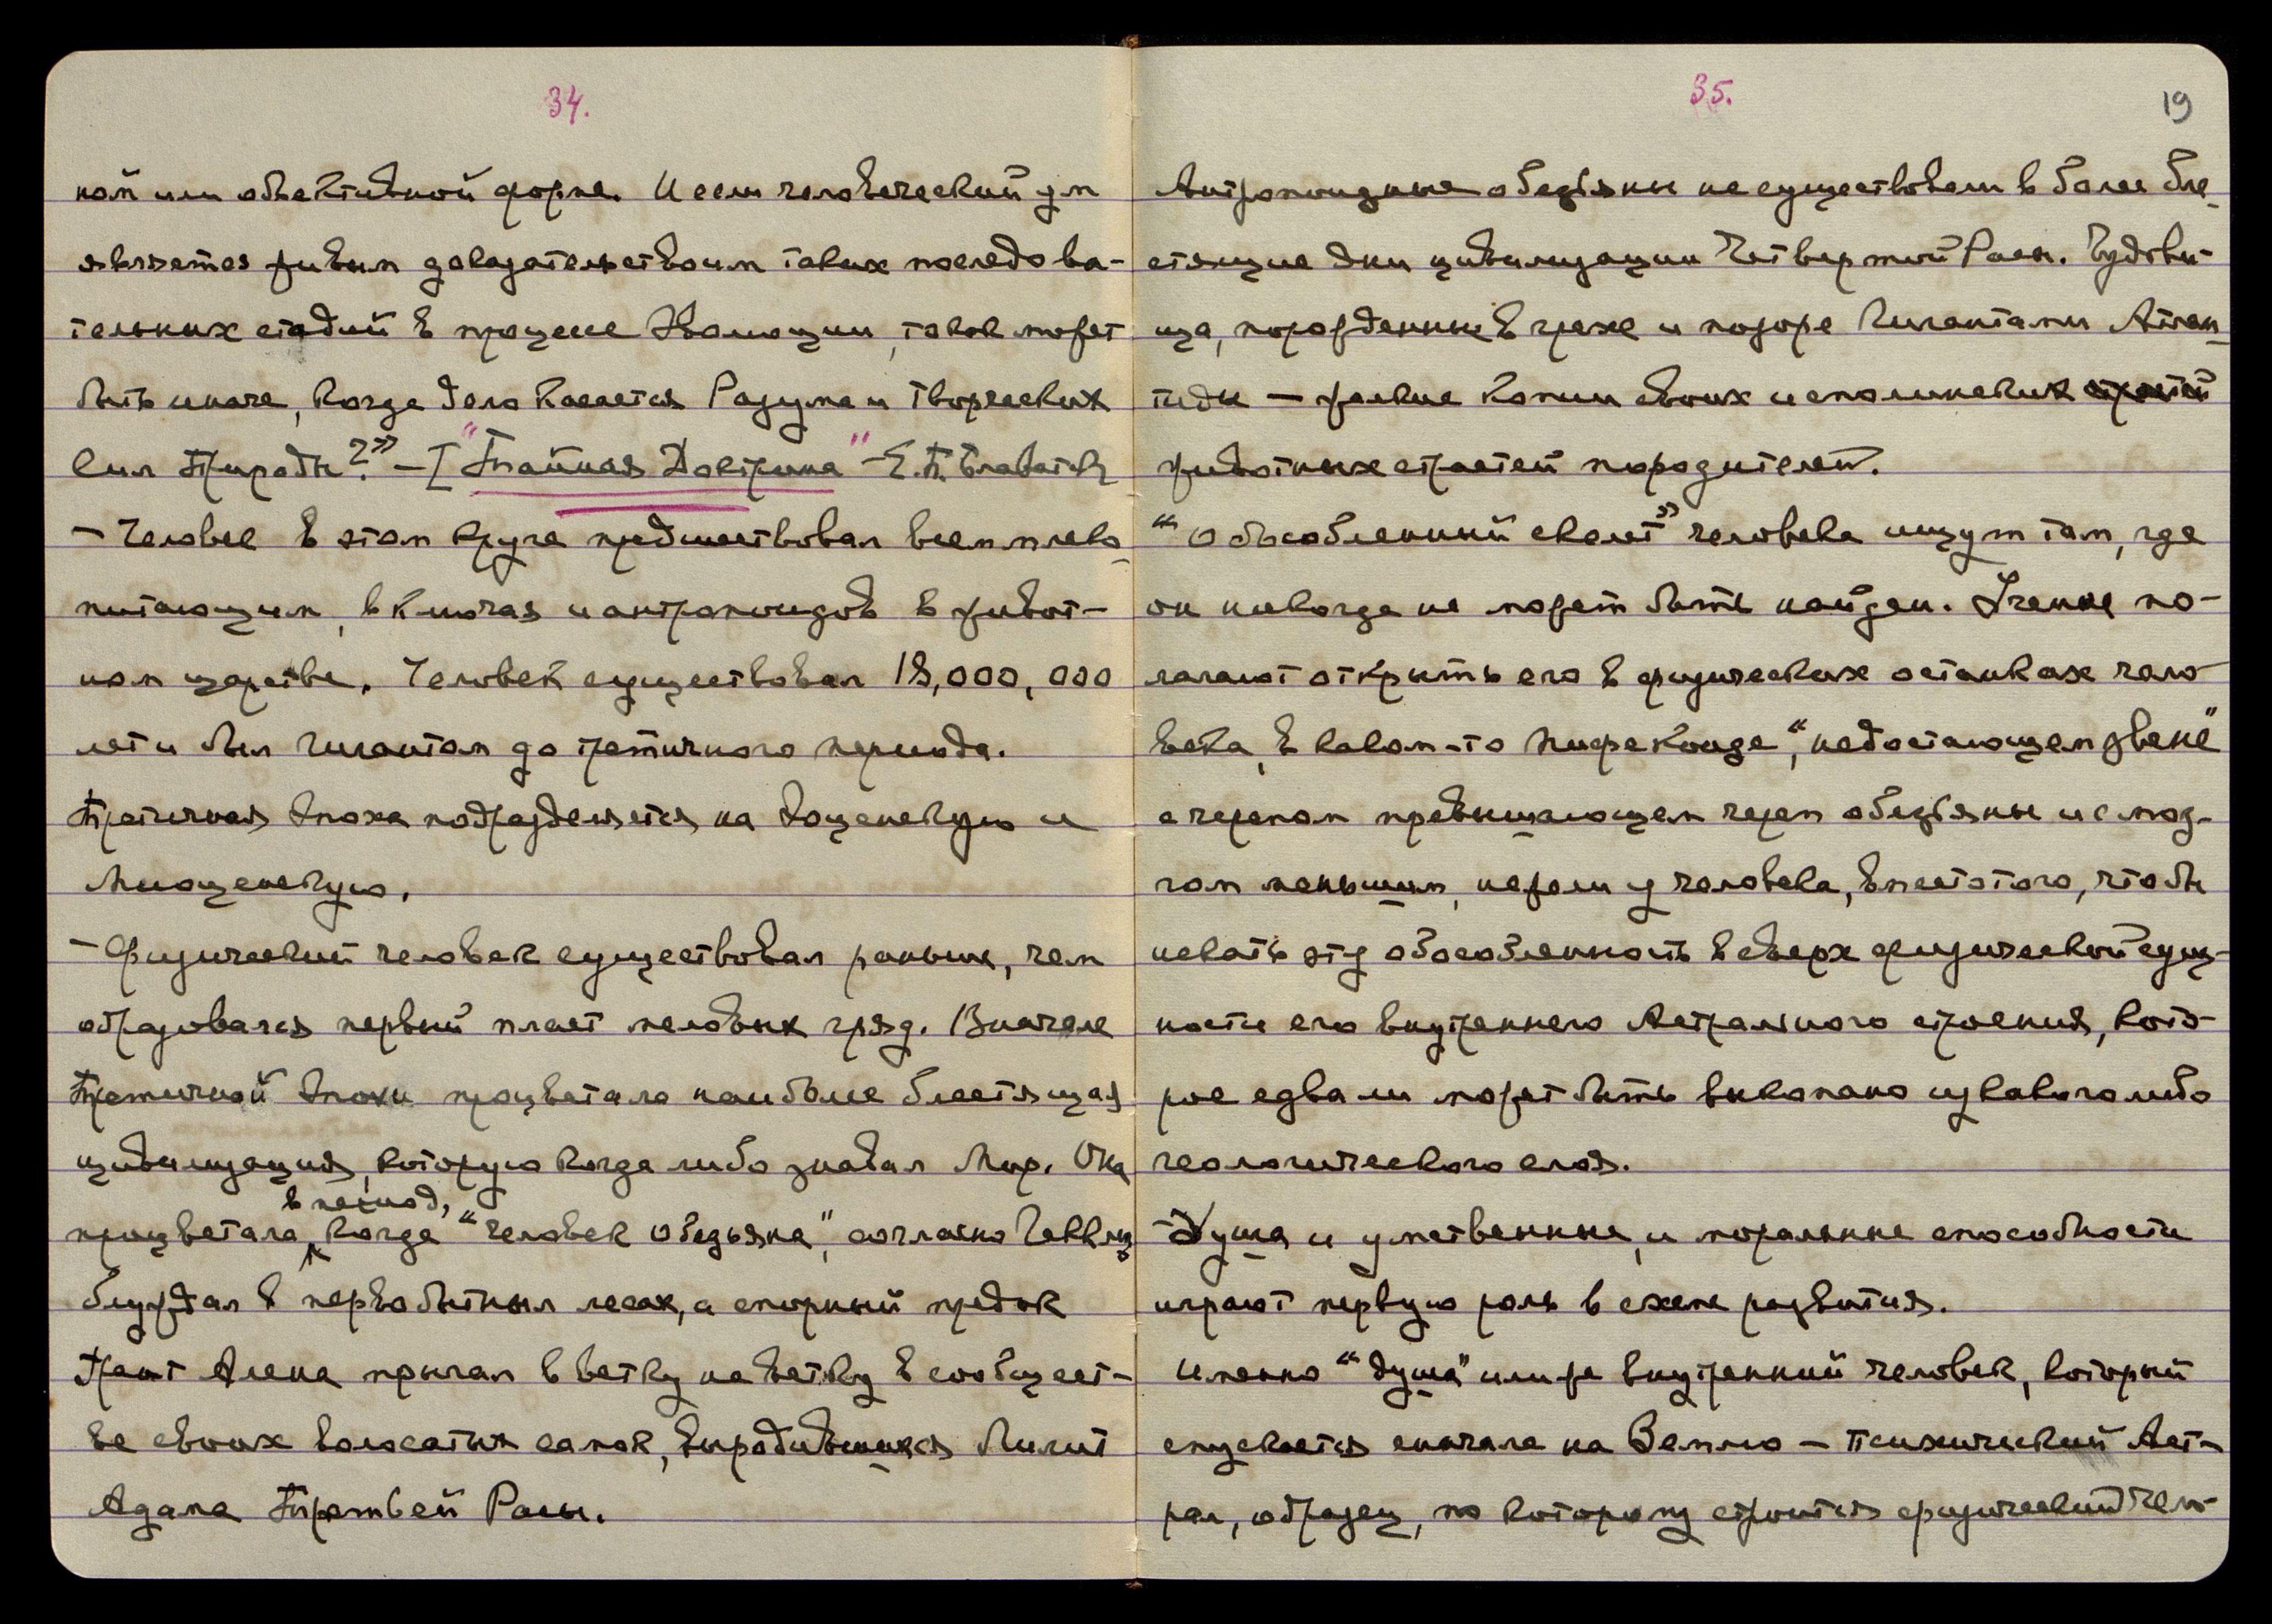 34.
ной или объективной форме. И если человеческий ум
является живым доказательством таких последова-
тельных стадий в процессе Эволюции, так может
быть иначе, когда дело касается Разума и Творческих
Сил Природы?” – I “Тайная Доктрина” – Е.П. Блаватск
– Человек в этом круге предшествовал всем млеко-
питающим, включая и антропоидов в живот-
ном царстве. Человек существовал 18,000,000
лет и был гигантом до третичного периода.
Третичная эпоха подразделяется на Эоценскую и
Миоценскую.
– Физический человек существовал раньше, чем
образовался первый пласт меловых гряд. В начале
Третичной Эпохи процветала наиболее блестящая
цивилизация, которую когда либо знавал Мир. Она
в период,
процветала когда “человек обезьяна”, согласно Геккелю
блуждал в первобытных лесах, а спорный предок
Грант Алена прыгал с ветку на ветку в сообщест-
ве своих волосатых самок, выродившихся Лилит
Адама Третьей Расы.
35.
19
Антропоидные обезьяны не существовали в более бле-
стящие дни цивилизации Четвертой Расы. Чудови-
ща, порожденные в грехе и позоре Гигантами Атлан-
тиды – жалкие копии своих исполинских
животных страстей породителей.
“Обособленный скелет” человека ищут там, где
он никогда не может быть найден. Ученые по-
лагают открыть его в физических останках чело-
века, в каком-то питекоиде, “недостающем звене”
с черепом превышающем череп обезьяны и с моз-
гом меньшим, нежели у человека, вместо того, чтобы
искать эту обособленность в сверх физической сущ-
ности его внутреннего Астрального строения, кото-
рое едва ли может быть выкопано из какого либо
геологического слоя.
– Душа и умственные, и моральные способности
играют первую роль в схеме развития.
Именно “душа” или же внутренний человек, который
спускается сначала на Землю – Психический Аст-
рал, образец, по которому строится физический чело-